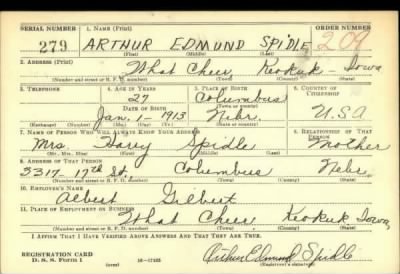 SERIAL NUMBER 1. NAME (Print) ORDER NUMBER
279 ARTHUR EDMUND SPIDLE 209
(First) (Middle) (Last)
2. ADDRESS (Print)
What Cheer Keokuk Iowa
(Number and street or R. F. D. number) (Town) (County) (State)
3. TELEPHONE 4. AGE IN YEARS 5. PLACE OF BIRTH 6. COUNTRY OF CITIZENSHIP
27 Columbus
DATE OF BIRTH (Town or county)
Jan. 1 - 1913 Nebr. U.S.A
(Exchange) (Number) (Mo.) (Day) (Yr.) (State or country)
7. NAME OF PERSON WHO WILL ALWAYS KNOW YOUR ADDRESS 8. RELATIONSHIP OF THAT PERSON
Mrs. Spidle Mother
(Mr., Mrs., Miss) (First) (Middle) (Last)
9. ADDRESS OF THAT PERSON
3317-17th St. Columbus Nebr.
(Number and street or R. F. D. number) (Town) (County) (State)
10. EMPLOYER'S NAME
Albert Gilbert
11. PLACE OF EMPLOYMENT OR BUSINESS
What Cheer Keokuk Iowa
(Number and street or R. F. D. number) (Town) (County) (State)
I AFFIRM THAT I HAVE VERIFIED ABOVE ANSWERS AND THAT THEY ARE TRUE.
REGISTRATION CARD
D. S. S. FORM 1 (over) 16-17105 Arthur Edmund Spidle
(Registrant's signature)